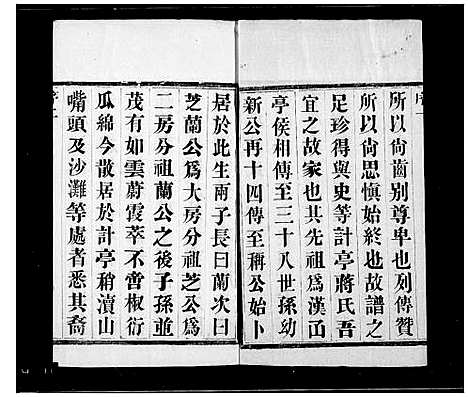 所以尙齒別尊卑也列傳贊
所以尙思愼始終也故譜之
足珍得與史等計亭蔣氏吾
宜之故家也其先祖爲漢㓛
亭侯相傳至三十八世孫幼
新公再十四傳至稱公始卜
居於此生兩子長曰蘭次曰
芝蘭公爲大房分祖芝公爲
二房分祖蘭公之後子孫並
茂有如雲蔚霞萃不啻椒衍
瓜綿今散居於計亭稍瀆山
嘴頭及沙灘等處者悉其裔